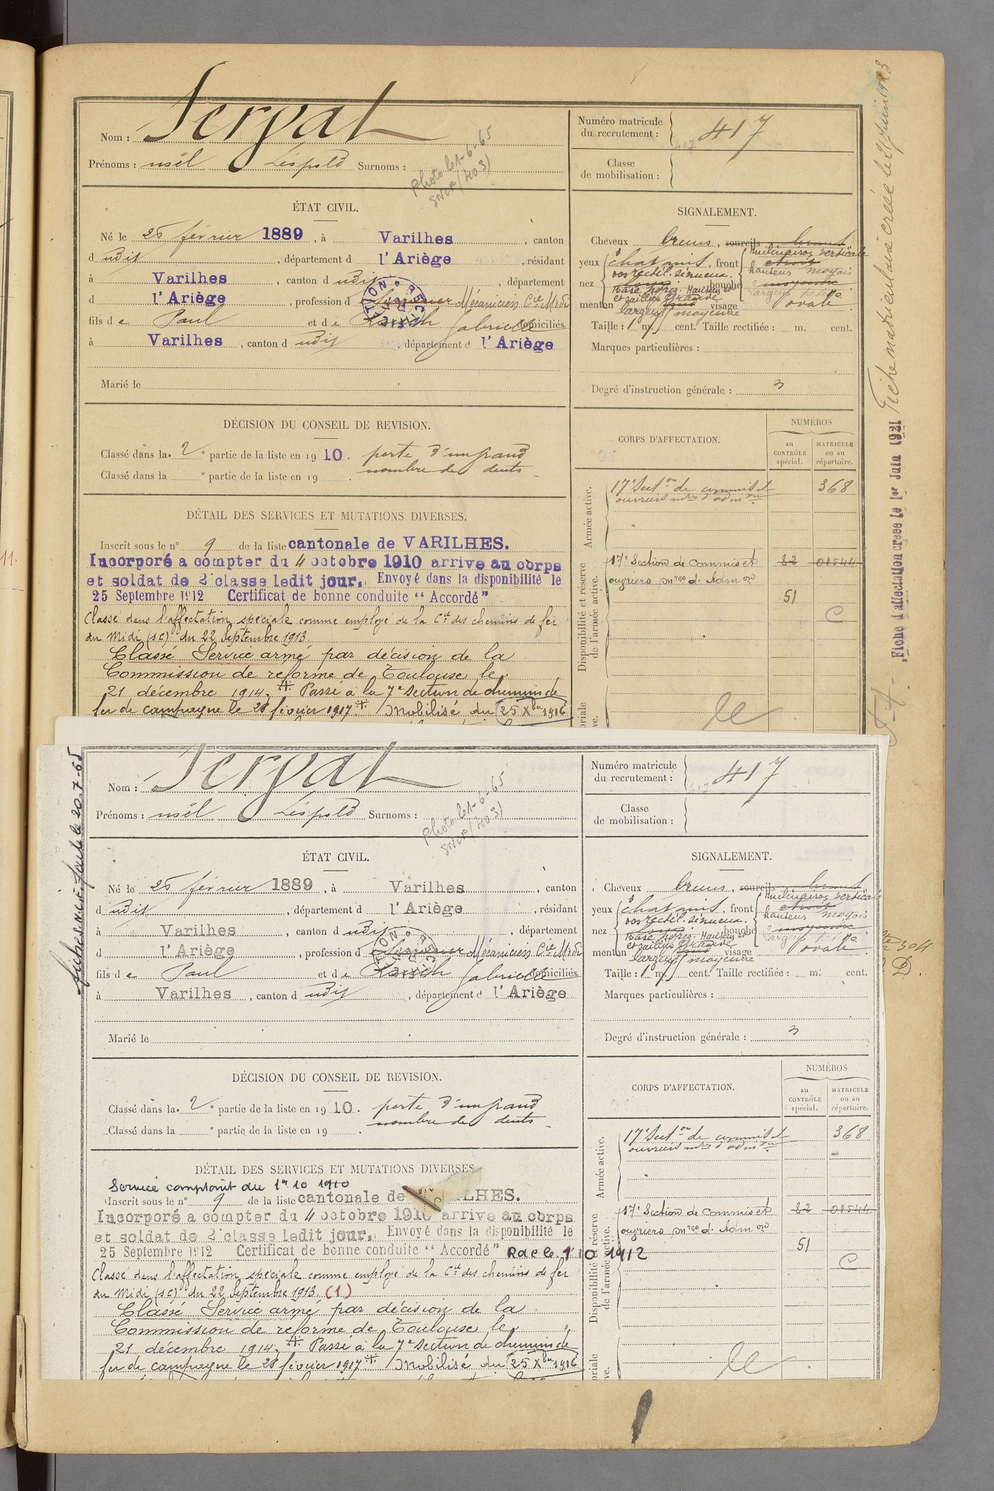 Nom : Sergat
Prénoms : usèl Léopold Surnoms :
Photo le 1-6-65
Numéro matricule
du recrutement : 417
Classe
de mobilisation :
ÉTAT CIVIL.
Né le 25 février 1889, à Varilhes, canton
dudit, département d l'Ariège, résidant
à Varilhes, canton dudit, département
d l'Ariège, profession d Mécanicien Cie Midi
fils de Paul et de Gabrielle domiciliés
à Varilhes, canton dudit, département d l'Ariège
Marié le
SIGNALEMENT.
Cheveux bruns, sourcils bruns
yeux chatains, front
hauteur moyen
nez bouche
menton visage ovale
Taille : 1 m. cent. Taille rectifiée : m. cent.
Marques particulières :
Degré d'instruction générale : 3
DÉCISION DU CONSEIL DE REVISION.
Classé dans la 2e partie de la liste en 1910. perte d'un grand
nombre de dents
Classé dans la e partie de la liste en 19 .
CORPS D'AFFECTATION.
NUMÉROS
au
CONTRÔLE
spécial.
MATRICULE
ou au
répertoire.
Armée active.
17e Secton de commis et 368
ouvriers mres d'admon
Disponibilité et réserve
de l'armée active.
17e Section de Commis et 82 01544
ouvriers mres d'Admon
51
C
DÉTAIL DES SERVICES ET MUTATIONS DIVERSES.
Inscrit sous le n° 9 de la liste cantonale de VARILHES.
Incorporé à compter du 4 octobre 1910 arrive au corps
et soldat de 2e classe ledit jour. Envoyé dans la disponibilité le
25 Septembre 1912 Certificat de bonne conduite "Accordé"
Classé dans l'affectation spéciale comme employé de la Cie des chemins de fer
du Midi (sc) du 22 Septembre 1913.
Classé Service armé par décision de la
Commission de réforme de Toulouse le
21 décembre 1914. Passé à la 7e Section de chemin de
fer de campagne le 28 février 1917 Mobilisé du 25 Xbre 1916
Fiche d'affectation créée le 1er Juin 1921
Fiche matriculaire créée le
Nom : Sergat
Prénoms : usèl Léopold Surnoms :
Photo le 1-6-65
Numéro matricule
du recrutement : 417
Classe
de mobilisation :
ÉTAT CIVIL.
Né le 25 février 1889, à Varilhes, canton
dudit, département d l'Ariège, résidant
à Varilhes, canton dudit, département
d l'Ariège, profession d Mécanicien Cie Midi
fils de Paul et de Gabrielle domiciliés
à Varilhes, canton dudit, département d l'Ariège
Marié le
SIGNALEMENT.
Cheveux bruns, sourcils bruns
yeux chatains, front
hauteur moyen
nez bouche
menton visage ovale
Taille : 1 m. cent. Taille rectifiée : m. cent.
Marques particulières :
Degré d'instruction générale : 3
DÉCISION DU CONSEIL DE REVISION.
Classé dans la 2e partie de la liste en 1910. perte d'un grand
nombre de dents
Classé dans la e partie de la liste en 19 .
CORPS D'AFFECTATION.
NUMÉROS
au
CONTRÔLE
spécial.
MATRICULE
ou au
répertoire.
Armée active.
17e Secton de commis et 368
ouvriers mres d'admon
Disponibilité et réserve
de l'armée active.
17e Section de Commis et 82 01544
ouvriers mres d'Admon
51
C
DÉTAIL DES SERVICES ET MUTATIONS DIVERSES.
Service comptant du 1er 10 1910
Inscrit sous le n° 9 de la liste cantonale de LHES.
Incorporé à compter du 4 octobre 1910 arrive au corps
et soldat de 2e classe ledit jour. Envoyé dans la disponibilité le
25 Septembre 1912 Certificat de bonne conduite "Accordé" Rae le 1 10 1912
Classé dans l'affectation spéciale comme employé de la Cie des chemins de fer
du Midi (sc) du 22 Septembre 1913. (1)
Classé Service armé par décision de la
Commission de réforme de Toulouse le
21 décembre 1914. Passé à la 7e Section de chemin de
fer de campagne le 28 février 1917 Mobilisé du 25 Xbre 1916